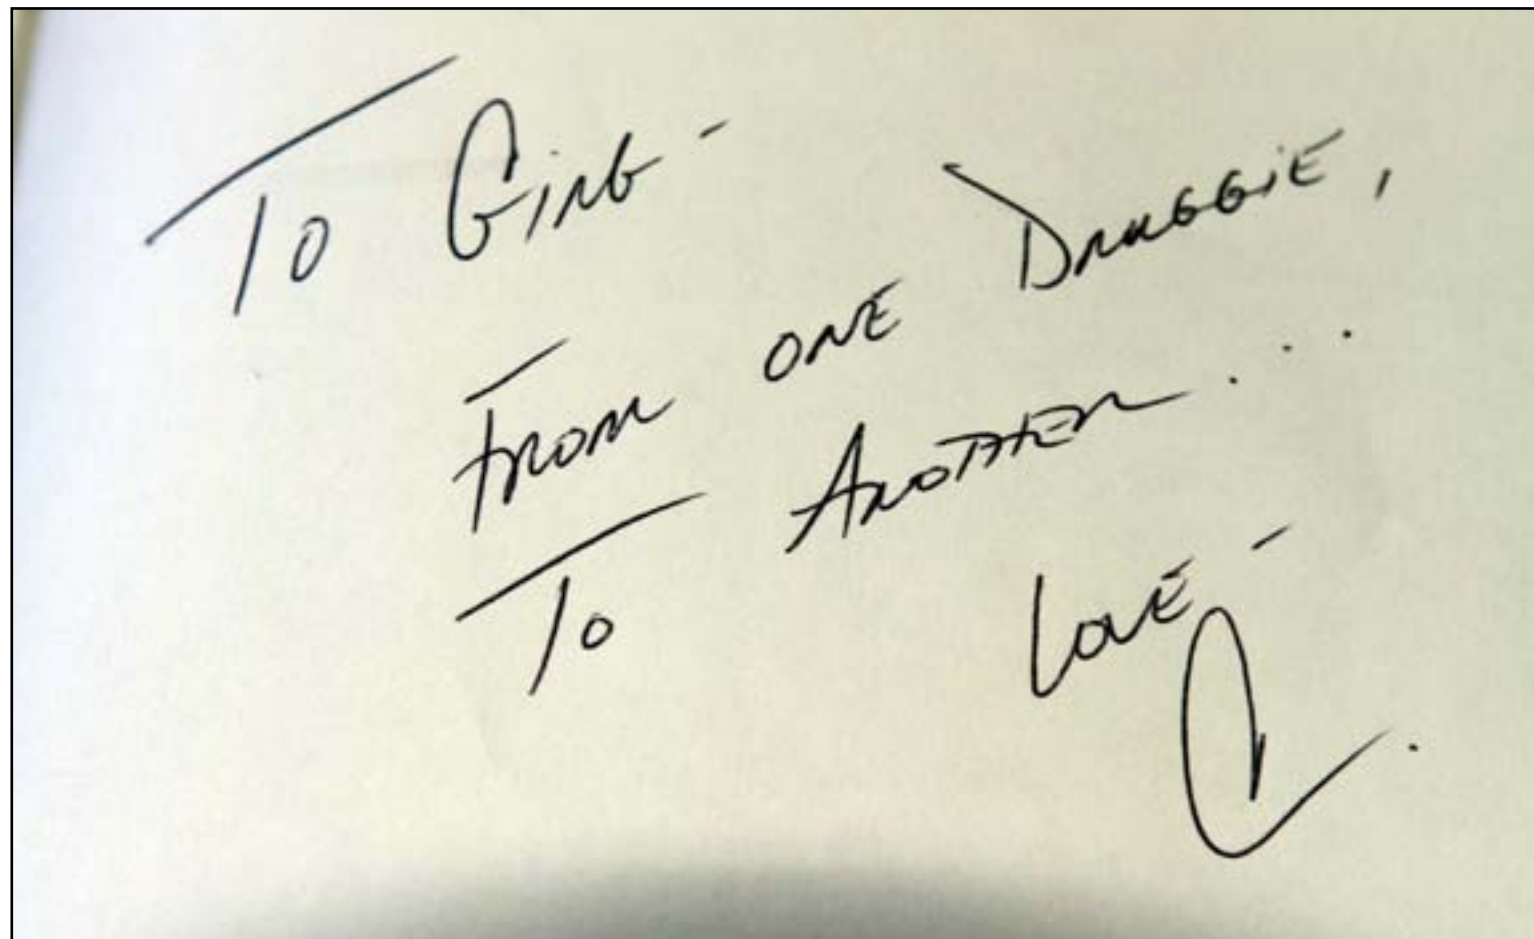 To
From one Druggie,
To Another...
Love -
C.